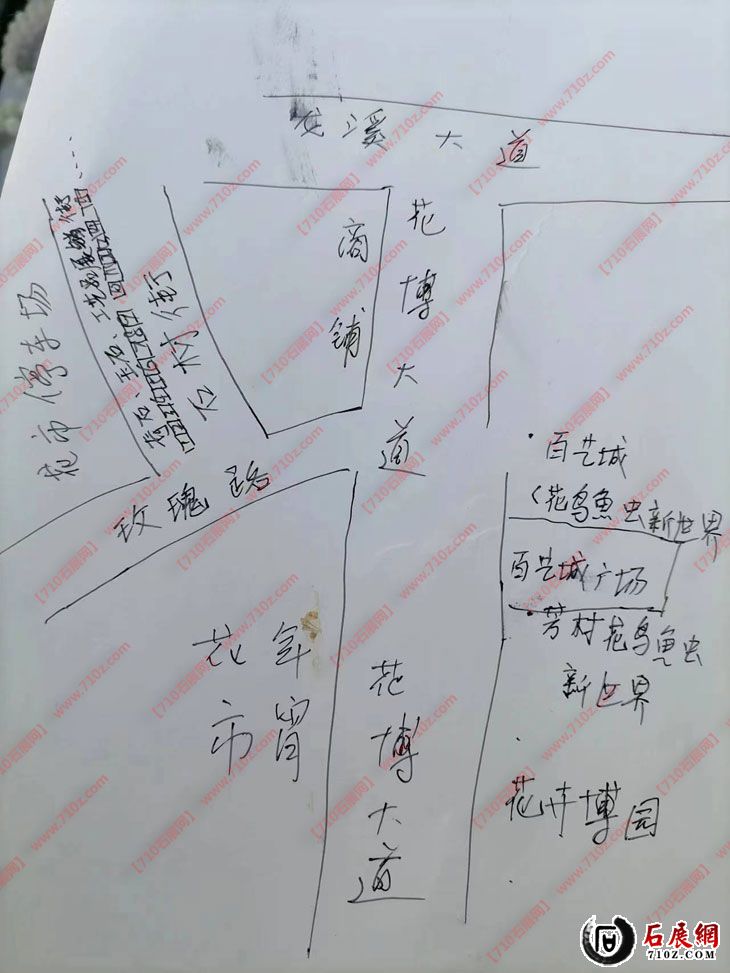 花溪大道
花博大道
商铺
花市停车场
石村街
玫瑰路
百艺城
(花鸟魚虫新世界
百艺城广场
芳村花鸟魚虫
新世界
年宵
花市
花博大道
花卉博园
石展網
710Z.COM
【710石展网】 www.710z.com